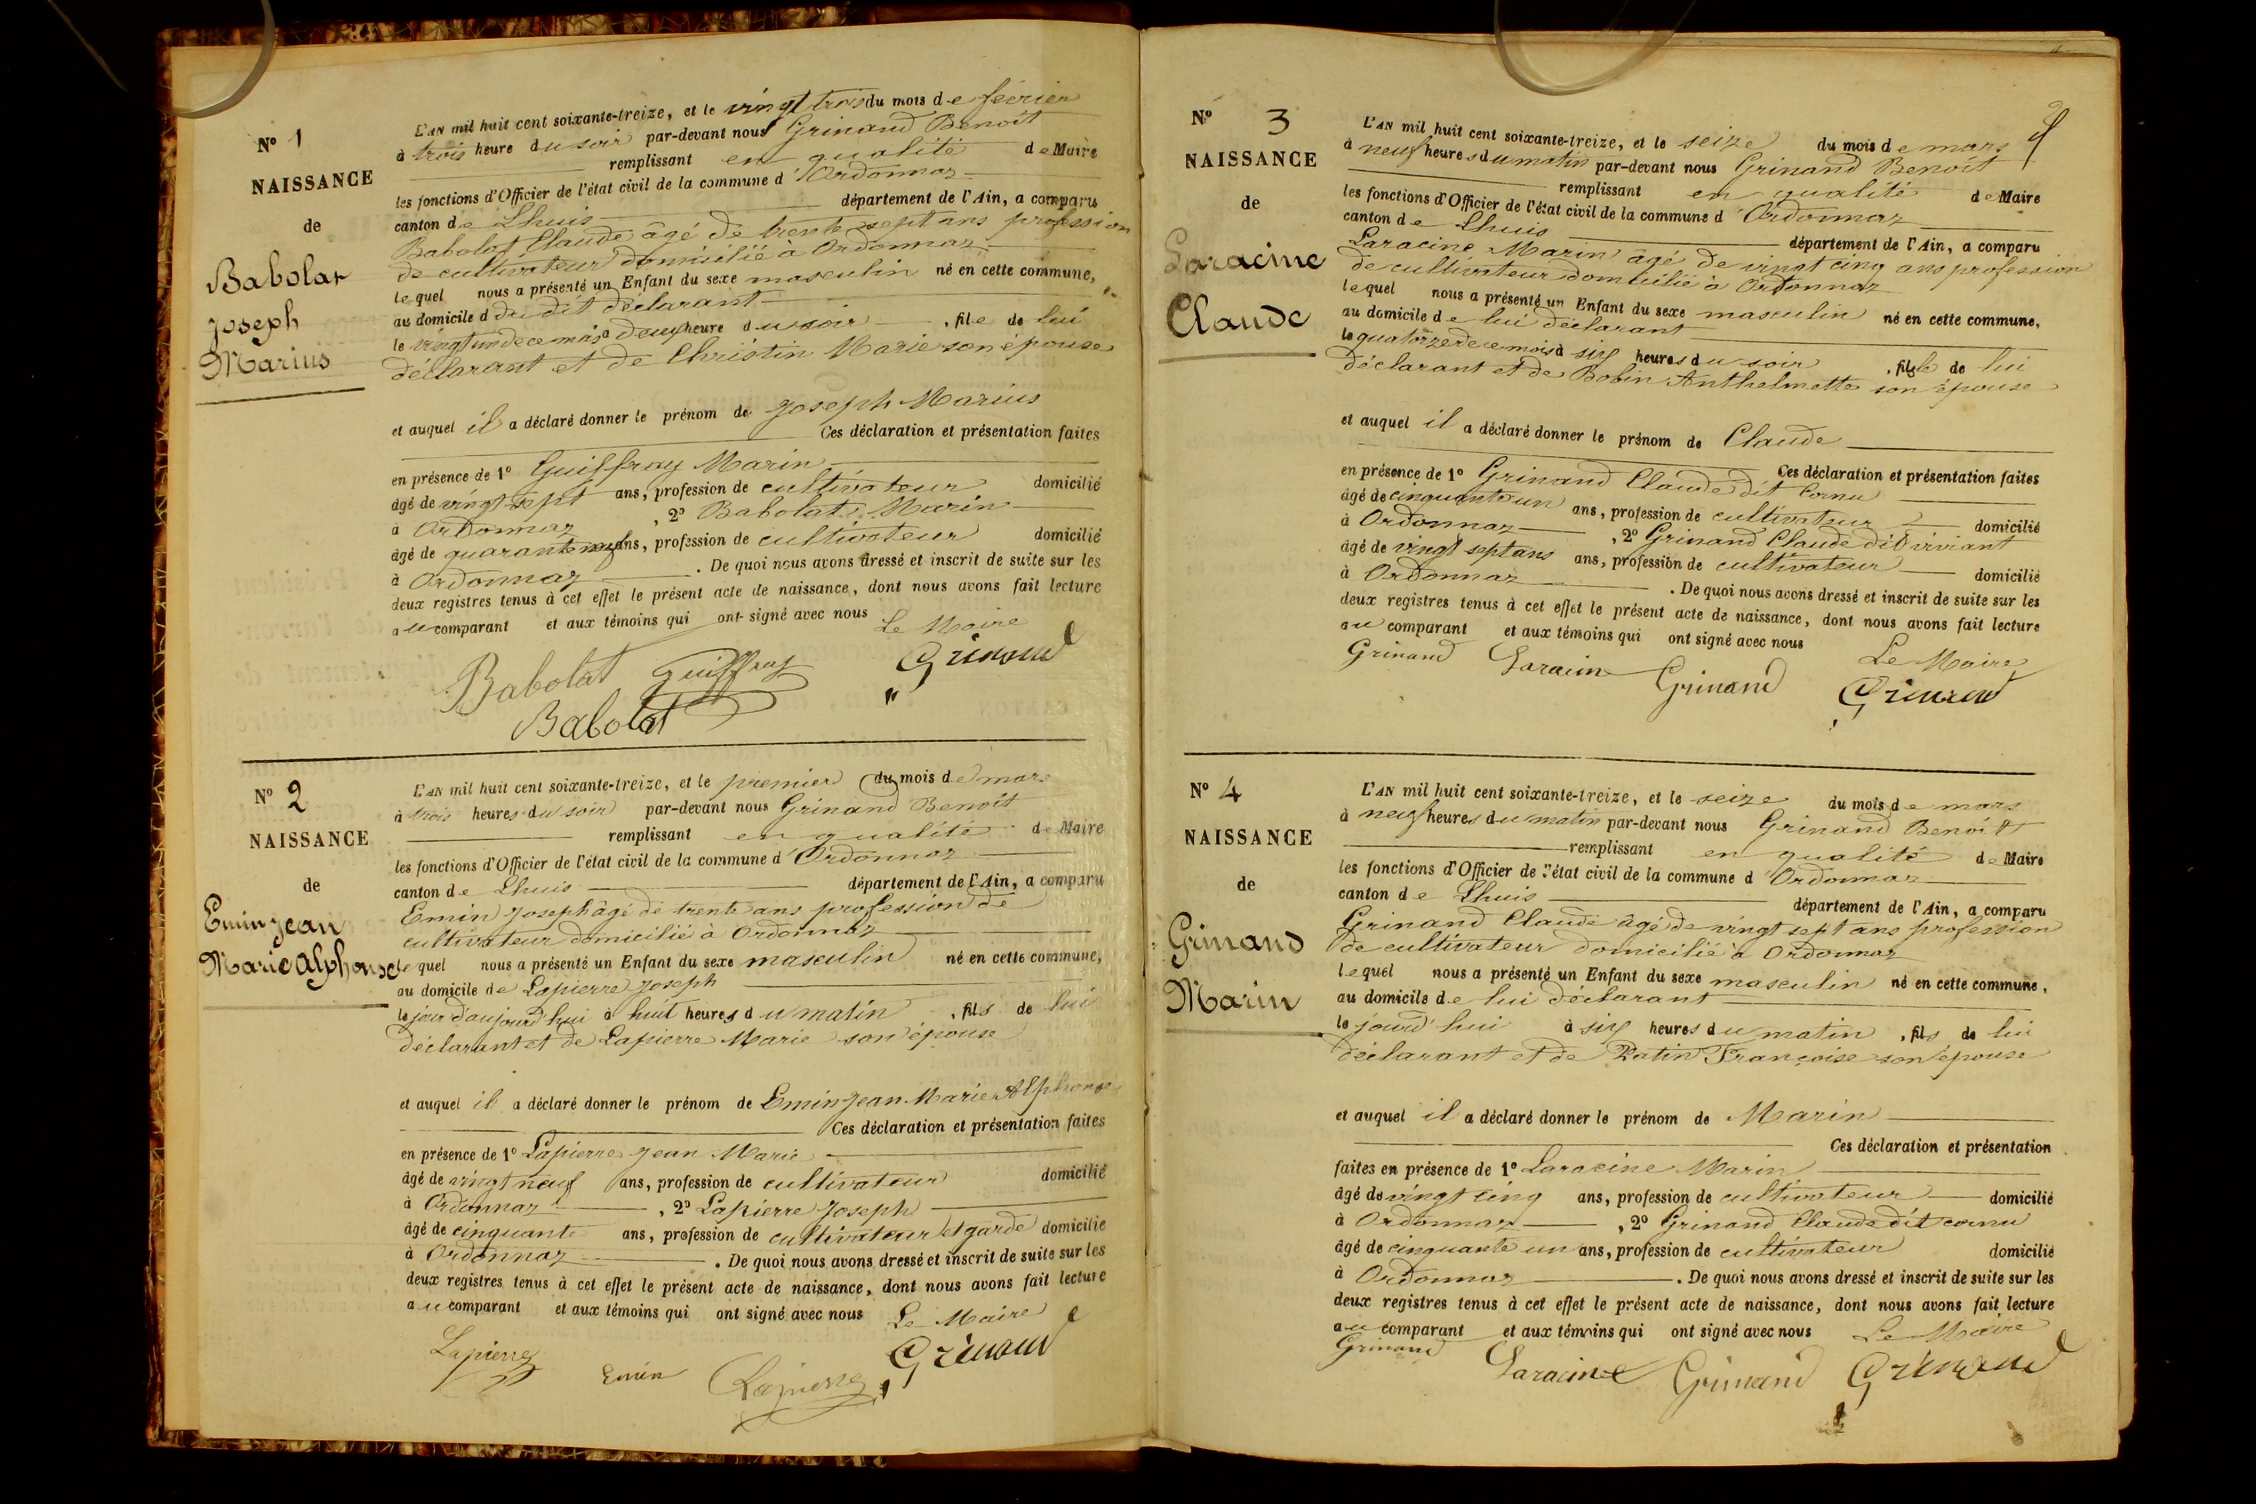 Nº 1
NAISSANCE
de
Babolat
Joseph
Marius
L'AN mil huit cent soixante-treize, et le vingt trois du mois de février
à trois heure du soir par-devant nous Grinand Benoît
remplissant en qualité de Maire
les fonctions d'Officier de l'état civil de la commune d'Ordonnaz
canton de Lhuis département de l'Ain, a comparu
Babolat Claude âgé de trente sept ans profession
de cultivateur domicilié à Ordonnaz
lequel nous a présenté un Enfant du sexe masculin né en cette commune,
au domicile d du dit déclarant
le vingt un de ce mois à deux heure du soir , fils de lui
déclarant et de Christin Marie son épouse
et auquel il a déclaré donner le prénom de Joseph Marius
Ces déclaration et présentation faites
en présence de 1º Guiffray Marin
âgé de vingt sept ans, profession de cultivateur domicilié
à Ordonnaz , 2º Babolat Marin
âgé de quarante neuf ans, profession de cultivateur domicilié
à Ordonnaz . De quoi nous avons dressé et inscrit de suite sur les
deux registres tenus à cet effet le présent acte de naissance, dont nous avons fait lecture
au comparant et aux témoins qui ont signé avec nous Le Maire
Babolat Guiffray Grinand
Babolat
Nº 2
NAISSANCE
de
Emin Jean
Marie Alphonse
L'AN mil huit cent soixante-treize, et le premier du mois de mars
à trois heures du soir par-devant nous Grinand Benoît
remplissant en qualité de Maire
les fonctions d'Officier de l'état civil de la commune d'Ordonnaz
canton de Lhuis département de l'Ain, a comparu
Emin Joseph âgé de trente ans profession de
cultivateur domicilié à Ordonnaz
lequel nous a présenté un Enfant du sexe masculin né en cette commune,
au domicile de Lapierre Joseph
le jour d'aujourd'hui à huit heures du matin , fils de lui
déclarant et de Lapierre Marie son épouse
et auquel il a déclaré donner le prénom de Emin Jean Marie Alphonse
Ces déclaration et présentation faites
en présence de 1º Lapierre Jean Marie
âgé de vingt neuf ans, profession de cultivateur domicilié
à Ordonnaz , 2º Lapierre Joseph
âgé de cinquante ans, profession de cultivateur et garde domicilié
à Ordonnaz . De quoi nous avons dressé et inscrit de suite sur les
deux registres tenus à cet effet le présent acte de naissance, dont nous avons fait lecture
au comparant et aux témoins qui ont signé avec nous Le Maire
Lapierre Emin Lapierre Grinand
Nº 3
NAISSANCE
de
Laracine
Claude
L'AN mil huit cent soixante-treize, et le seize du mois de mars
à neuf heures du matin par-devant nous Grinand Benoît
remplissant en qualité de Maire
les fonctions d'Officier de l'état civil de la commune d'Ordonnaz
canton de Lhuis département de l'Ain, a comparu
Laracine Marin âgé de vingt cinq ans profession
de cultivateur domicilié à Ordonnaz
lequel nous a présenté un Enfant du sexe masculin né en cette commune,
au domicile de lui déclarant
le quatorze de ce mois à six heures du soir , fils de lui
déclarant et de Bobin Anthelmette son épouse
et auquel il a déclaré donner le prénom de Claude
Ces déclaration et présentation faites
en présence de 1º Grinand Claude dit Cornu
âgé de cinquante un ans, profession de cultivateur domicilié
à Ordonnaz , 2º Grinand Claude dit viviant
âgé de vingt sept ans ans, profession de cultivateur domicilié
à Ordonnaz . De quoi nous avons dressé et inscrit de suite sur les
deux registres tenus à cet effet le présent acte de naissance, dont nous avons fait lecture
au comparant et aux témoins qui ont signé avec nous Le Maire
Grinand Laracine Grinand Grinand
Nº 4
NAISSANCE
de
Grinand
Marin
L'AN mil huit cent soixante-treize, et le seize du mois de mars
à neuf heures du matin par-devant nous Grinand Benoît
remplissant en qualité de Maire
les fonctions d'Officier de l'état civil de la commune d'Ordonnaz
canton de Lhuis département de l'Ain, a comparu
Grinand Claude âgé de vingt sept ans profession
de cultivateur domicilié à Ordonnaz
lequel nous a présenté un Enfant du sexe masculin né en cette commune,
au domicile de lui déclarant
le jourd'hui à six heures du matin , fils de lui
déclarant et de Ratin Françoise son épouse
et auquel il a déclaré donner le prénom de Marin
Ces déclaration et présentation
faites en présence de 1º Laracine Marin
âgé de vingt cinq ans, profession de cultivateur domicilié
à Ordonnaz , 2º Grinand Claude dit cornu
âgé de cinquante un ans, profession de cultivateur domicilié
à Ordonnaz . De quoi nous avons dressé et inscrit de suite sur les
deux registres tenus à cet effet le présent acte de naissance, dont nous avons fait lecture
au comparant et aux témoins qui ont signé avec nous Le Maire
Grinand Laracine Grinand Grinand